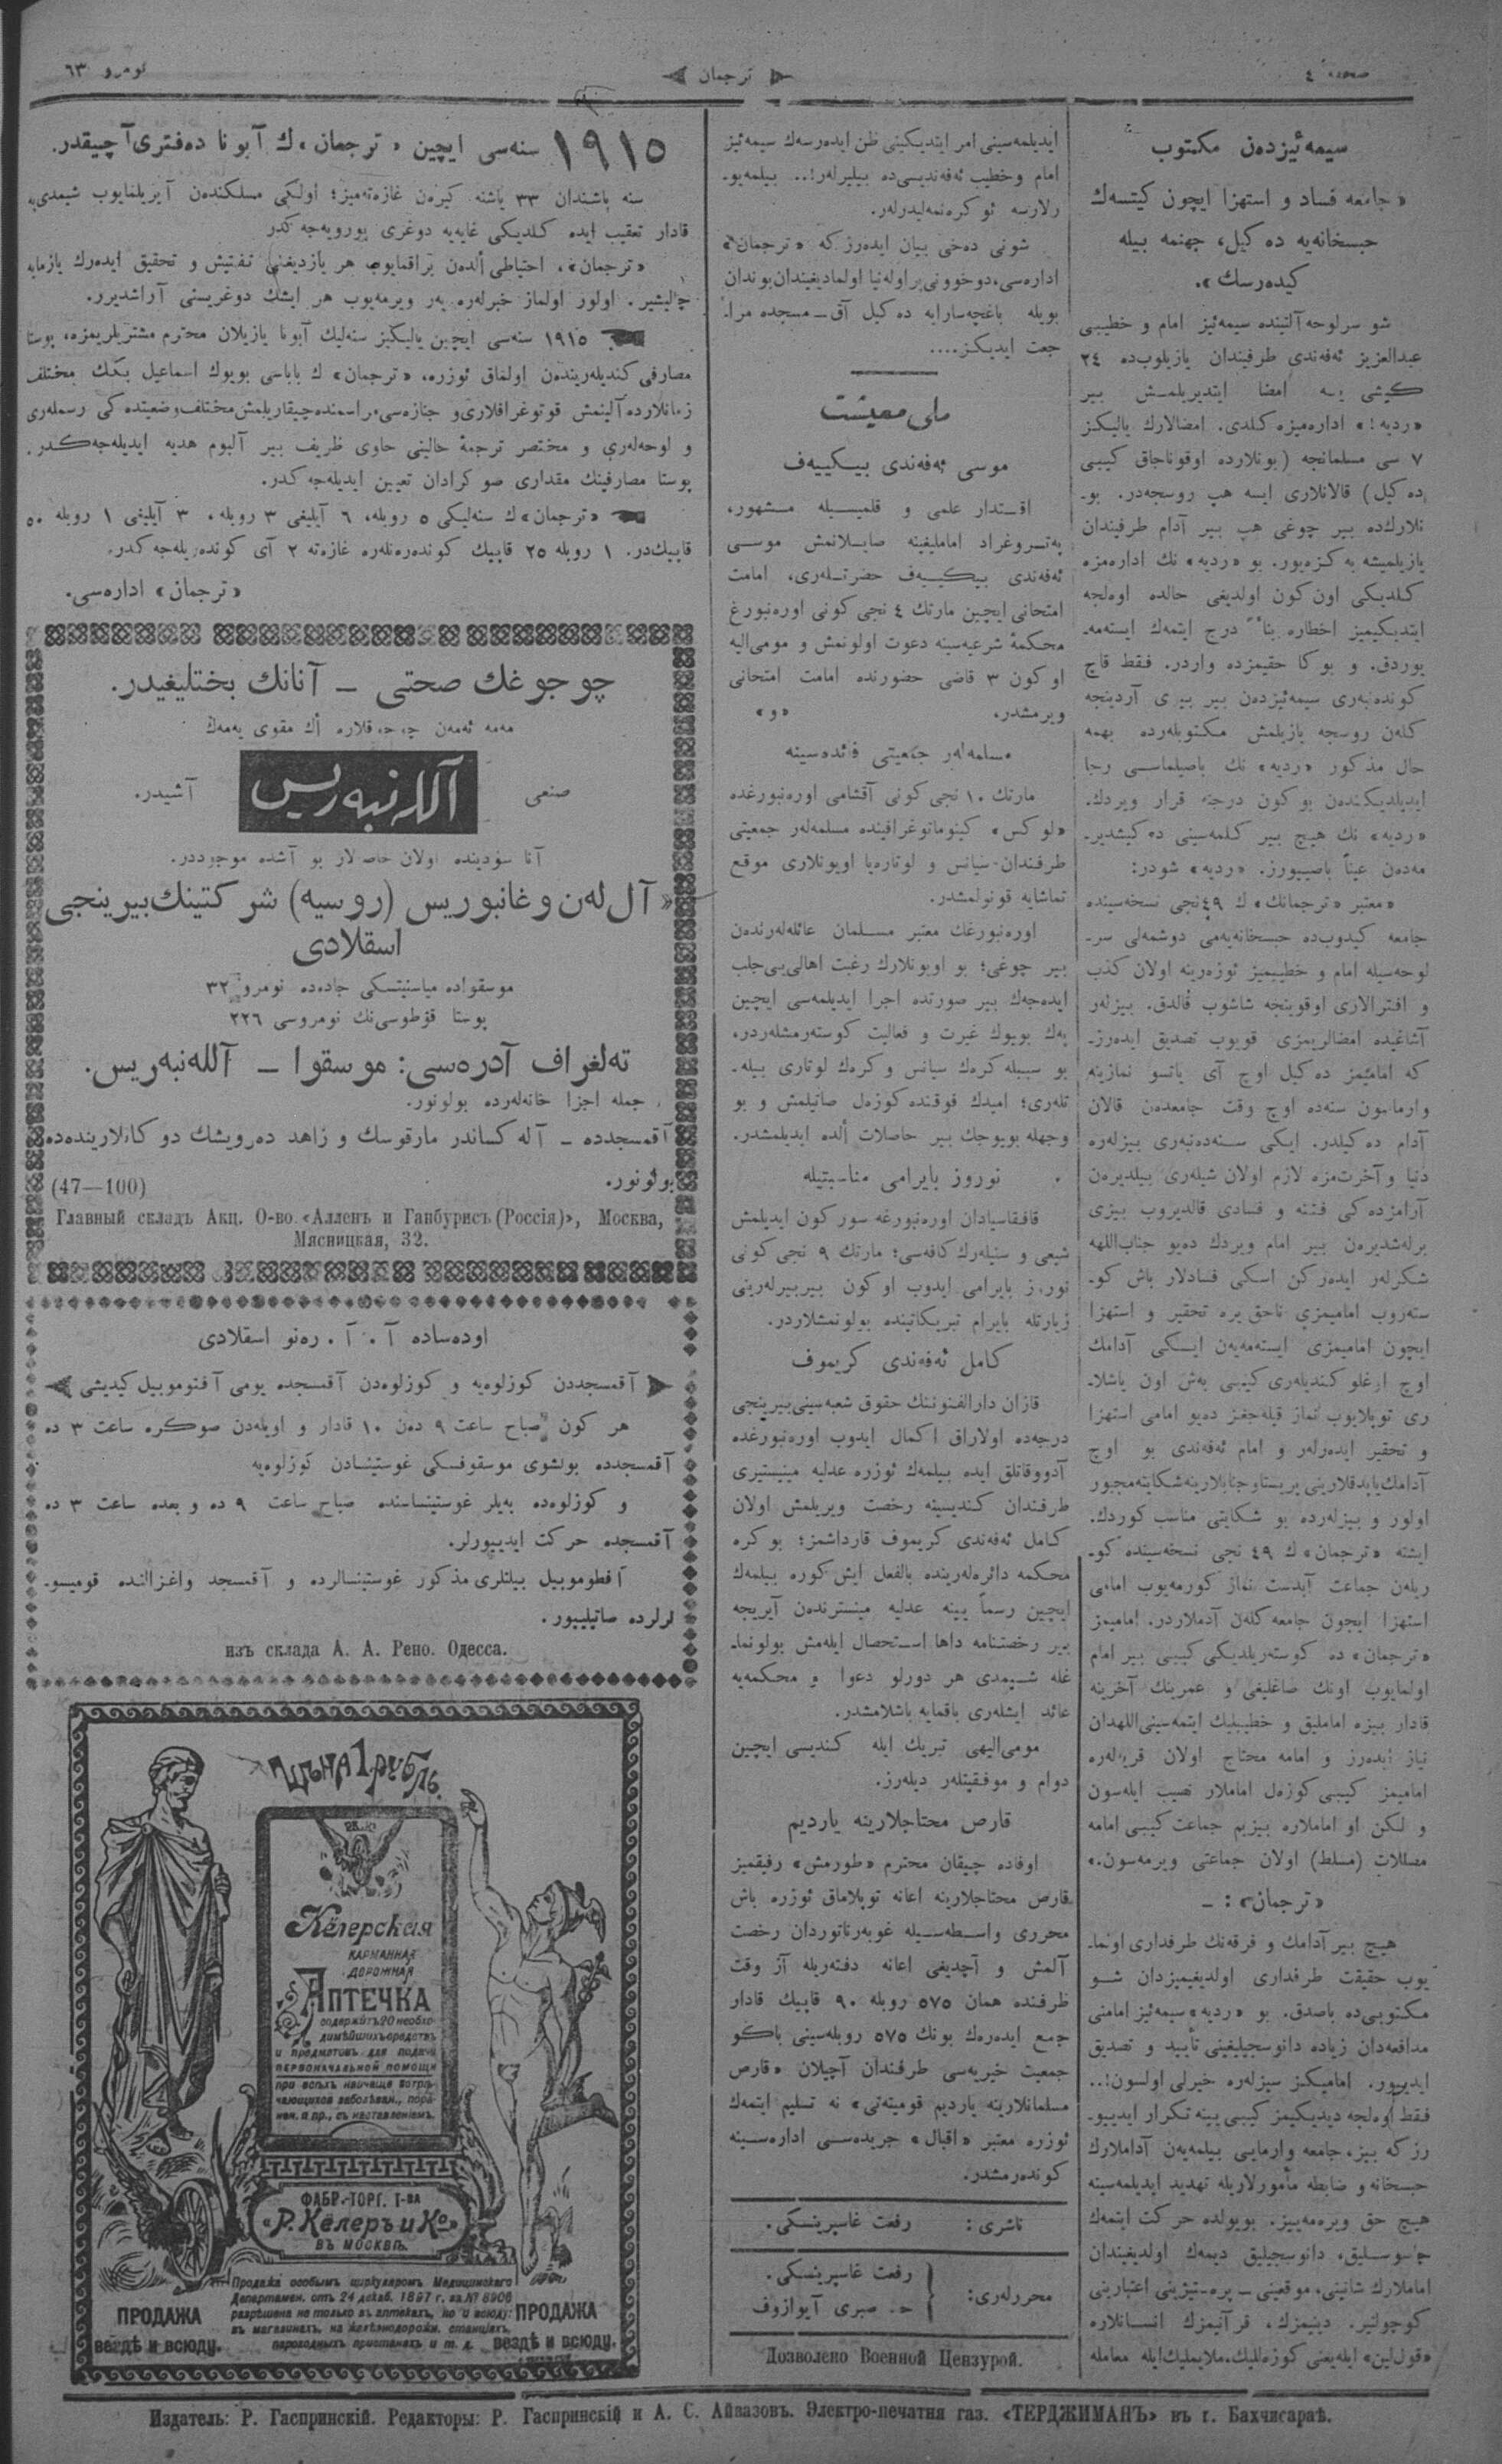 صحيفه ٤
﴿ ترجمان ﴾
نومرو ٦٣
سیمەئیزدەن مکتوب
«جامعه فساد و استهزا ایچون کیتسەڭ
حبسخانەیه دەکیل، جهنمه بیله
کیدەرسڭ».
شو سرلوحه آلتینده سیمەئیز امام و خطیبی
عبدالعزیز ئەفەندی طرفیندان یازیلوب‌ده ٢٤
کیشی یـه امضا ایتدیریلمـش بیر
«ردیه!» ادارەمیزه کلدی. امضالارڭ یالیڭز
٧ سی مسلمانجه (بونلارده اوقوناجاق کیبی
دەکیل) قالانلاری ایسه هپ روسجەدر. بو-
نلارڭ‌ده بیر چوغی هپ بیر آدام طرفیندان
یازیلمیشه بەکزەیور. بو «ردیه» نڭ ادارەمزه
کلدیکی اون کون اولدیغی حالده اوەلجه
ایتدیکیمیز اخطاره بناءً درج ایتمەڭ ایستەمە-
یوردق. و بوکا حقیمزده واردر. فقط قاچ
کوندەنبەری سیمەئیزدەن بیر بیری آردینجه
کلەن روسجه یازیلمش مکتوبلەرده بهمه
حال مذکور «ردیه» نڭ باصیلماسی رجا
ایدیلدیکندەن بوکون درجنه قرار ویردڭ.
«ردیه» نڭ هیچ بیر کلمەسینی دەکیشدیر-
مەدەن عیناً باصییورز. «ردیه» شودر:
«معتبر «ترجمانڭ» ڭ ٤٩نجی نسخەسینده
جامعه کیدوب‌ده حبسخانەیەمی دوشمەلی سر-
لوحەسیله امام و خطیبمیز ئوزەرینه اولان کذب
و افترالاری اوقوینجه شاشوب قالدق. بیزلەر
آشاغیده امضالریمزی قویوب تصدیق ایدەرز-
که امامئمز دەکیل اوچ آی یاتسو نمازینه
وارماسون سنەده اوچ وقت جامعدەن قالان
آدام دەکیلدر. ایکی سنەدەنبەری بیزلەره
دنیا و آخرت‌مزه لازم اولان شیلەری بیلدیرەن
آرامزدەکی فتنه و فسادی قالدیروب بیزی
برلەشدیرەن بیر امام ویردڭ دەیو جناب‌اللهه
شکرلەر ایدەرکن اسکی فسادلار باش کو-
ستەروب امامیمزی ناحق یره تحقیر و استهزا
ایچون امامیمزی ایستەمەیەن ایـکی آدامڭ
اوچ اوغلو کندیلەری کیبی بەش اون یاشلا-
ری توپلایوب نماز قیلەجغز دەیو امامی استهزا
و تحقیر ایدەرلەر و امام ئەفەندی بو اوچ
آدامڭ یاپدقلارینی پریستاو جنابلارینه شکایته مجبور
اولور و بیزلەرده بو شکایتی مناسب کوردڭ.
ایشته «ترجمان» ڭ ٤٩ نجی نسخەسینده کو-
ریلەن جماعت آبدست نماز کورمەیوب امامی
استهزا ایچون جامعه کلەن آدملاردر. امامیمز
«ترجمان» ده کوستەریلدیکی کیبی بیر امام
اولمایوب اونڭ صاغلیغی و عمرینڭ آخرینه
قادار بیزه اماملیق و خطیبلیڭ ایتمەسینی‌اللهدان
نیاز ایدەرز و امامه محتاج اولان قریەلەره
امامیمز کیبی کوزەل اماملار نصیب ایلەسون
و لـکن او اماملاره بیزیم جماعت کیبی امامه
مسللات (مسلط) اولان جماعتی ویرمەسون.»
«ترجمان»: –
هیچ بیر آدامڭ و فرقەنڭ طرفداری اولما-
یوب حقیقت طرفداری اولدیغیمیزدان شـو
مکتوبی‌ده باصدق. بو «ردیه» سیمەئیز امامنی
مدافعەدان زیاده دانوسجیلیغینی تأیید و تصدیق
ایدییور. امامیڭز سیزلەره خیرلی اولسون!..
فقط اوەلجه دیدیکیمز کیبی یینه تـکرار ایدییو-
رزکه بیز، جامعه وارمایی بیلمەیەن آداملارڭ
حبسخانه و ضابطه مأمورلاریله تهدید ایدیلمەسینه
هیچ حق ویرەمەییز. بویولده حرکت ایتمەڭ
جاسوسلیق، دانوسجیلیق دیمەڭ اولدیغیندان
اماملارڭ شانینی، موقعینی – پرەستیژینی اعتبارینی
کوچولتیر. دینیمزڭ، قرآنیمزڭ انسـانلاره
«قول‌لین» ایله‌یعنی کوزەللیڭ، ملایملیڭ‌ایله معامله
ایدیلمەسینی امر ایتدیکینی ظن ایدەرسەڭ سیمەئیز
امام و خطیب ئەفەندیسی‌ده بیلیرلەر!.. بیلمەیو-
رلارسه ئوکرەنمەلیدرلەر.
شونی دەخی بیان ایدەرزکه «ترجمان»
ادارەسی، دوخوونی پراولەنیا اولمادیغیندان بوندان
بویله باغچەسارایه دەکیل آق – مسجده مرا-
جعت ایدیڭز....
ملی معیشت
موسی ئەفەندی بیـکییەف
اقتدار علمی و قلمیـیله مـشهور،
پەتـروغراد اماملیغینه صایـلانمش موسـی
ئەفەندی بیـکیـیەف حضرتـلەری، امامت
امتحانی ایچین مارتڭ ٤ نجی کونی اورەنبورغ
محکمۀ شرعیەسینه دعوت اولونمش و مومی‌الیه
اوکون ٣ قاضی حضورنده امامت امتحانی
ویرمشدر. «و»
مسلمەلەر جمعیتی فائدەسینه
مارتڭ ١٠ نجی کونی آقشامی اورەنبورغده
«لوکس» کینوماتوغرافینده مسلمەلەر جمعیتی
طرفندان-سیانس و لوتارەیا اویونلاری موقع
تماشایه قونولمشدر.
اورەنبورغڭ معتبر مسـلمان عائلەلەرندەن
بیر چوغی؛ بو اویونلارڭ رغبت اهالی‌یی‌جلب
ایدەجەڭ بیر صورتده اجرا ایدیلمەسی ایچین
پەڭ بویوڭ غیرت و فعالیت کوستەرمشلەردر،
بو سببله کرەڭ سیانس و کرەڭ لوتاری بیله-
تلەری؛ امیدڭ فوقنده کوزەل صاتیلمش و بو
وجهله بویوجڭ بیر حاصلات ألده ایدیلمشدر.
نوروز بایرامی مناسبتیله
قافقاسیادان اورەنبورغه سورکون ایدیلمش
شیعی و سنیلەرڭ کافەسی؛ مارتڭ ٩ نجی کونی
نوروز بایرامی ایدوب اوکون بیربیرلەرینی
زیارتله بایرام تبریکاتینده بولونمشلاردر.
کامل ئەفەندی کریموف
قازان دارالفنوننڭ حقوق شعبەسینی‌بیرینجی
درجەده اولاراق اکمال ایدوب اورەنبورغده
آدووقاتلق ایده بیلمەڭ ئوزره عدلیه مینیستیری
طرفندان کندیسینه رخصت ویریلمش اولان
کـامل ئەفەندی کریموف قارداشمز؛ بوکره
محکمه دائرەلەرینده بالفعل ایش کوره بیلمەڭ
ایچین رسماً یینه عدلیه مینسترندەن آیریجه
بیر رخصتنامه داها استحصال ایلەمش بولونما-
غله شـیمدی هر دورلو دعوا و محکمەیه
عائد ایشلەری باقمایه باشلامشدر.
مومی‌الیهی تبریڭ ایله کندیسی ایچین
دوام و موفقیتلەر دیلەرز.
قارص محتاجلارینه یاردیم
اوفاده چیقان محترم «طورمش» رفیقمیز
قارص محتاجلارینه اعانه توپلاماق ئوزره باش
محرری واسـطەسـیله غوبەرناتوردان رخصت
آلمش و آچدیغی اعانه دفتەریله آز وقت
ظرفنده همان ٥٧٥ روبله ٩٠ قاپیڭ قادار
جمع ایدەرەڭ بونڭ ٥٧٥ روبلەسینی باکو
جمعیت خیریەسی طرفندان آچیلان «قارص
مسلمانلارینه یاردیم قومیتەتی» نه تسلیم ایتمەڭ
ئوزره معتبر «اقبال» جریدەسـی ادارەسـینه
کوندەرمشدر.
ناشری: رفعت غاسپرینسکی.
محررلەری: رفعت غاسپرینسکی.
ح. صبری آیوازوف
Дозволено Военной Цензурой.
١٩١٥ سنەسی ایچین «ترجمان» ڭ آبونا دەفتری‌آچیقدر.
سنه باشندان ٣٣ یاشنه کیرەن غازەتەمیز؛ اولکی مسلکندەن آیریلمایوب شیمدی‌یه
قادار تعقیب ایده کلدیکی غایەیه دوغری یورویەجەکدر
«ترجمان»، احتیاطی ألدەن براقمایوب هر یازدیغنی تفتیش و تحقیق ایدەرڭ یازمایه
چالیشیر. اولور اولماز خبرلەره یەر ویرمەیوب هر ایشڭ دوغریسنی آراشدیرر.
١٩١٥ سنەسی ایچین یالیڭز سنەلیڭ آبونا یازیلان محترم مشتریلریمزه، پوستا
مصارفی کندیلەریندەن اولماق ئوزره، «ترجمان» ڭ باباسی بویوڭ اسماعیل بکڭ مختلف
زمانلارده آلینمش فوتوغرافلاری‌و جنازەسی مراسمنده چیقاریلمش مختلف وضعیتدەکی رسملەری
و لوحەلەری و مختصر ترجمۀ حالینی حاوی ظریف بیر آلبوم هدیه ایدیلەجەکدر.
پوستا مصارفینڭ مقداری صوکرادان تعیین ایدیلەجەکدر.
«ترجمان» ڭ سنەلیکی ٥ روبله، ٦ آیلیغی ٣ روبله، ٣ آیلیغی ١ روبله ٥٠
قاپیڭ‌در. ١ روبله ٢٥ قاپیڭ کوندەرەنلەره غازەته ٢ آی کوندەریلەجەکدر.
«ترجمان» ادارەسی.
چوجوغڭ صحتی – آنانڭ بختلیغیدر.
مەمه ئەمەن چوجوقلاره أڭ مقوی یەمەڭ
صنعی آللەنبەریس آشیدر.
آنا سوٴدینده اولان خاصەلار بو آشده موجوددر.
«آل‌لەن وغانبوریس (روسیه) شرکتینڭ‌بیرینجی
اسقلادی
موسقواده میاسنیتسکی جادەده نومرو ٣٢
پوستا قوٴطوسی‌نڭ نومروسی ٢٢٦
تەلغراف آدرەسی: موسقوا – آللەنبەریس.
جمله اجزا خانەلەرده بولونور.
آقمسجدده – آلەکساندر مارقوسڭ و زاهد دەرویشڭ دوکانلارینده‌ده
بولونور. (47—100)
Главный складъ Акц. О-во «Алленъ и Ганбурисъ (Россія)», Москва,
Мясницкая, 32.
اودەساده آ. آ. رەنو اسقلادی
آقمسجددن کوزلوەیه و کوزلوەدن آقمسجده یومی آفتوموبیل کیدیشی
هر کون صباح ساعت ٩ دەن ١٠ قادار و اویلەدن صوڭره ساعت ٣ ده
آقمسجدده بولشوی موسقوفسکی غوستینسادن کوزلوەیه
و کوزلوەده بەیلر غوستینساسنده صباح ساعت ٩ ده و بعده ساعت ٣ ده
آقمسجده حرکت ایدییورلر.
آفطوموبیل بیلتلری مذکور غوستینسالرده و آقمسجد واغزالنده قومیسو-
نرلرده صاتیلییور.
изъ склада А. А. Рено. Одесса.
Цѣна 1 рубль.
Р.К. и Ко
Кёлерская
КАРМАННАЯ
ДОРОЖНАЯ
АПТЕЧКА
содержитъ 20 необхо-
димѣйшихъ средствъ
и предметовъ для подачи
ПЕРВОНАЧАЛЬНОЙ ПОМОЩИ
при всѣхъ наичаще встрѣ-
чающихся заболѣван., пора-
нен. и пр., съ наставленіемъ.
ФАБР.-ТОРГ. Т-ва
«Р. Кёлеръ и Ко»
ВЪ МОСКВѢ.
Продажа особымъ циркуляромъ Медицинскаго
Департамен. отъ 24 декаб. 1897 г. за № 8906
разрѣшена не только въ аптекахъ, но и всюду:
въ магазинахъ, на желѣзнодорожн. станціяхъ,
пароходныхъ пристаняхъ и т. д.
ПРОДАЖА
вездѣ и всюду.
ПРОДАЖА
вездѣ и всюду.
Издатель: Р. Гаспринскій. Редакторы: Р. Гаспринскій и А. С. Айвазовъ. Электро-печатня газ. «ТЕРДЖИМАНЪ» въ г. Бахчисараѣ.